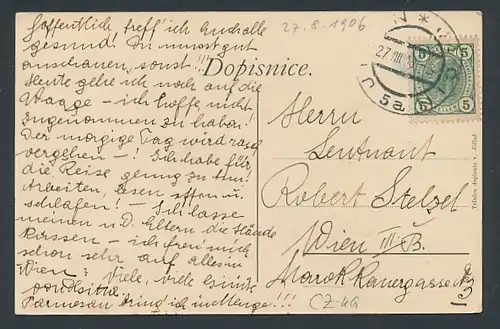 Hoffentlich treff' ich Euch alle
gesund. Du musst gut
ausschauen, sonst!!!
Heute gehe ich noch auf die
Waage – ich hoffe, nicht
zugenommen zu haben!
Der morgige Tag wird rasch
vergehen –! Ich habe für
die Reise genug zu thun!
Arbeiten, lesen, essen u.
schlafen! – Ich lasse
meinen u. D. Eltern die Hände
küssen – ich freu' mich
schon sehr auf alles in
Wien! Viele, viele
Parmesan bring' ich in Menge!!!
27.8.1906
Dopisnice.
27 VIII
5a
5 5
5 5
HELLER
Herrn
Leutnant
Robert Stelzel
Wien III/B.
Marokkanergasse
CZ KG